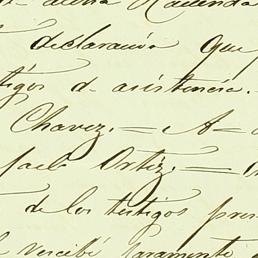 dicha Hacienda
declaración que
tigos d. asistencia.
Chavez.— A—
fael Ortiz.—
de los testigos pres
recibí juramento